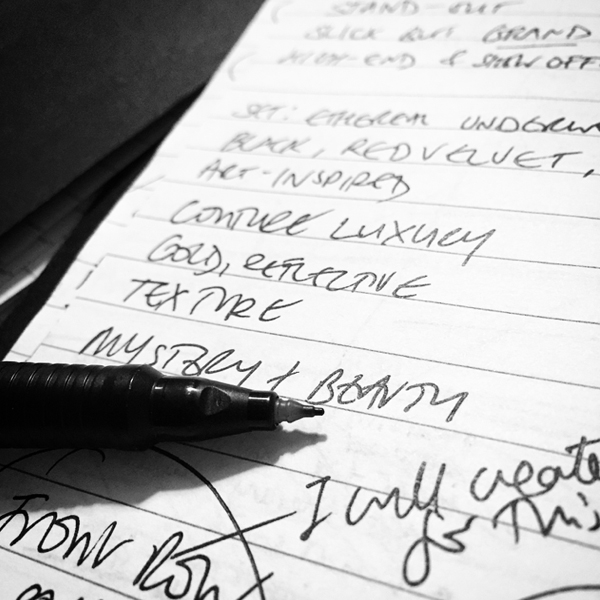 STAND-OUT
SLICK BUT GRAND
HIGH-END & SHOW OFF
SET: ETHEREAL
BLACK, RED VELVET,
ART-INSPIRED
COUTURE LUXURY
GOLD, REFLECTIVE
TEXTURE
MYSTERY + BEAUTY
I will create
for This
Front Row